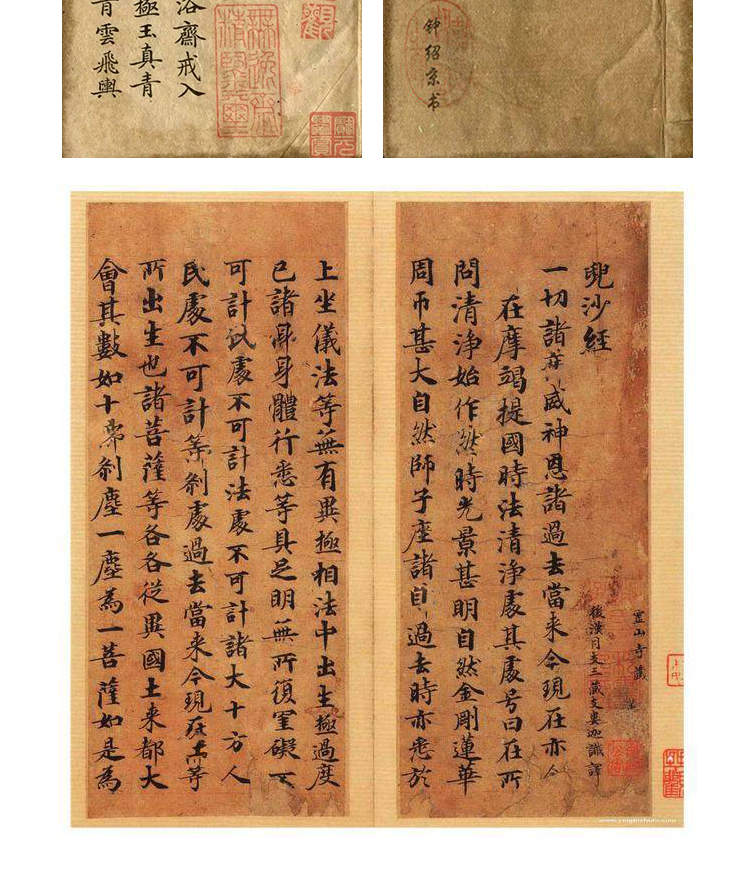 浴齋戒入
極玉真青
肯雲飛輿
钟绍京书
靈山寺藏
兜沙經
後漢月支三藏支婁迦讖譯
一切諸威神恩諸過去當来今現在亦
在摩竭提國時法清淨處其處号曰在所
問清淨始作時光景甚明自然金剛蓮華
周帀甚大自然師子座諸過去時亦悉於
上坐儀法等無有異極相法中出生極過度
已諸身體行悉等具足明無所復罣礙
可計處不可計法處不可計諸大十方人
民處不可計等剎處過去當来今現在等
所出生也諸菩薩等各各從異國土来都大
會其數如十剎塵一塵為一菩薩如是為